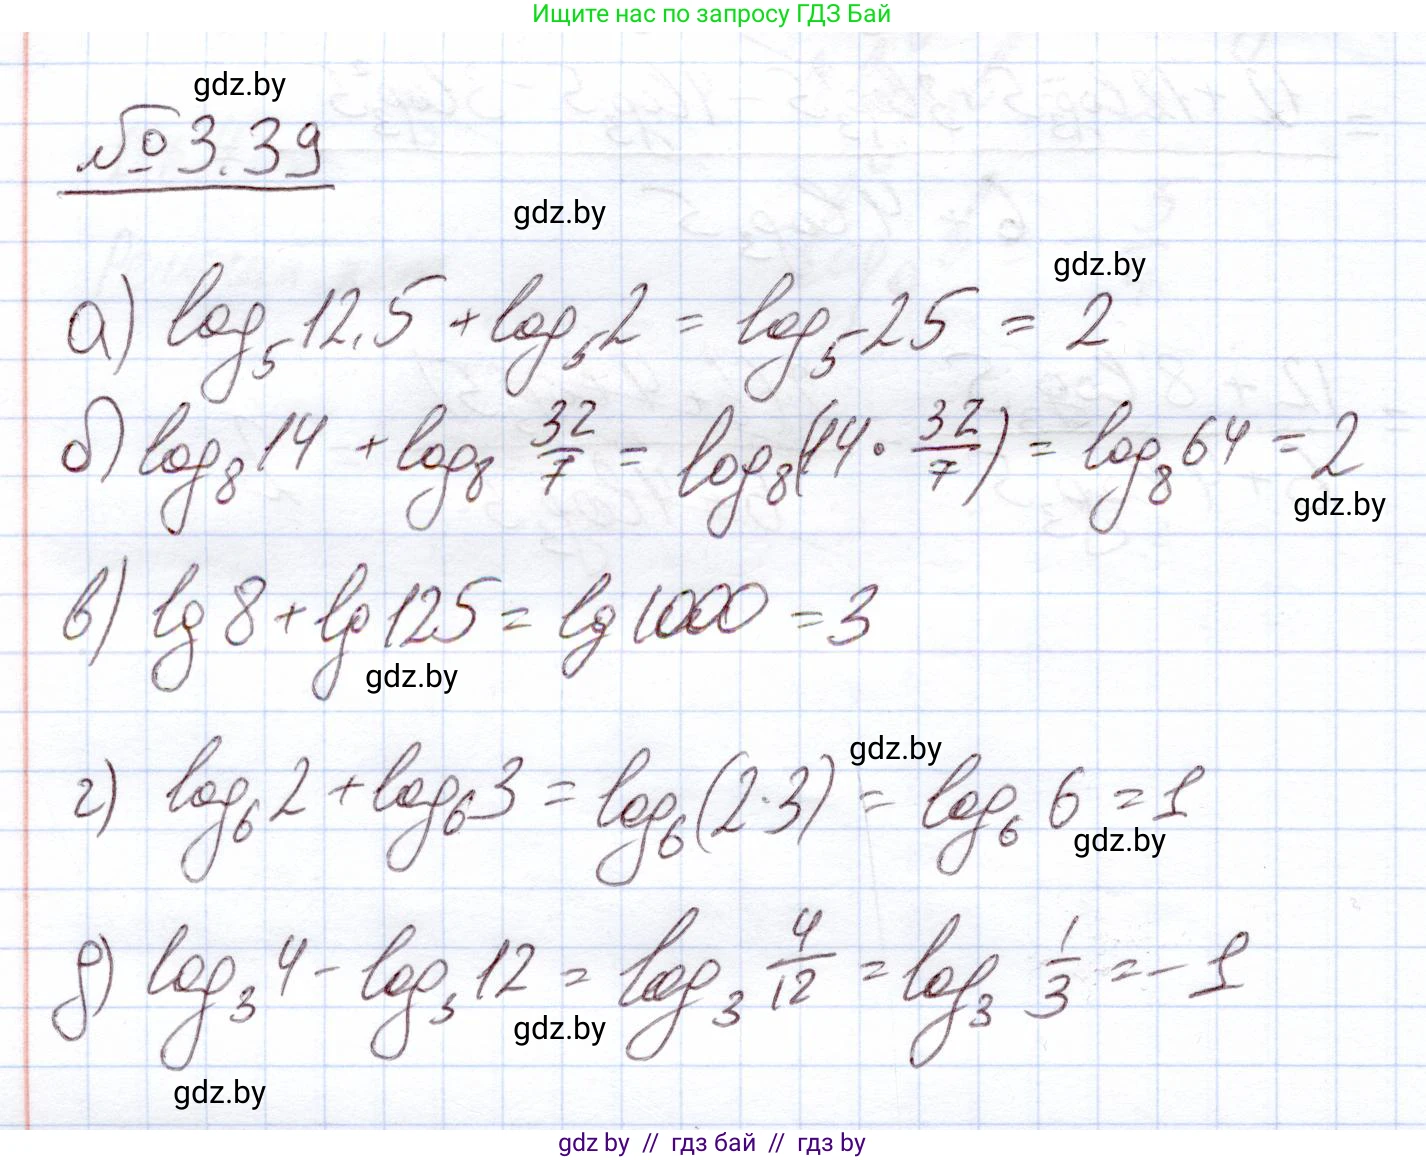 Ищите нас по запросу ГДЗ Бай
gdz.by
№ 3.39
gdz.by
gdz.by
а) log₅ 12,5 + log₅ 2 = log₅ 25 = 2
б) log₈ 14 + log₈ 32/7 = log₈(14 · 32/7) = log₈ 64 = 2
gdz.by
в) lg 8 + lg 125 = lg 1000 = 3
gdz.by
gdz.by
г) log₆ 2 + log₆ 3 = log₆ (2·3) = log₆ 6 = 1
gdz.by
д) log₃ 4 - log₃ 12 = log₃ 4/12 = log₃ 1/3 = -1
gdz.by
gdz.by
gdz by // гдз бай // гдз by